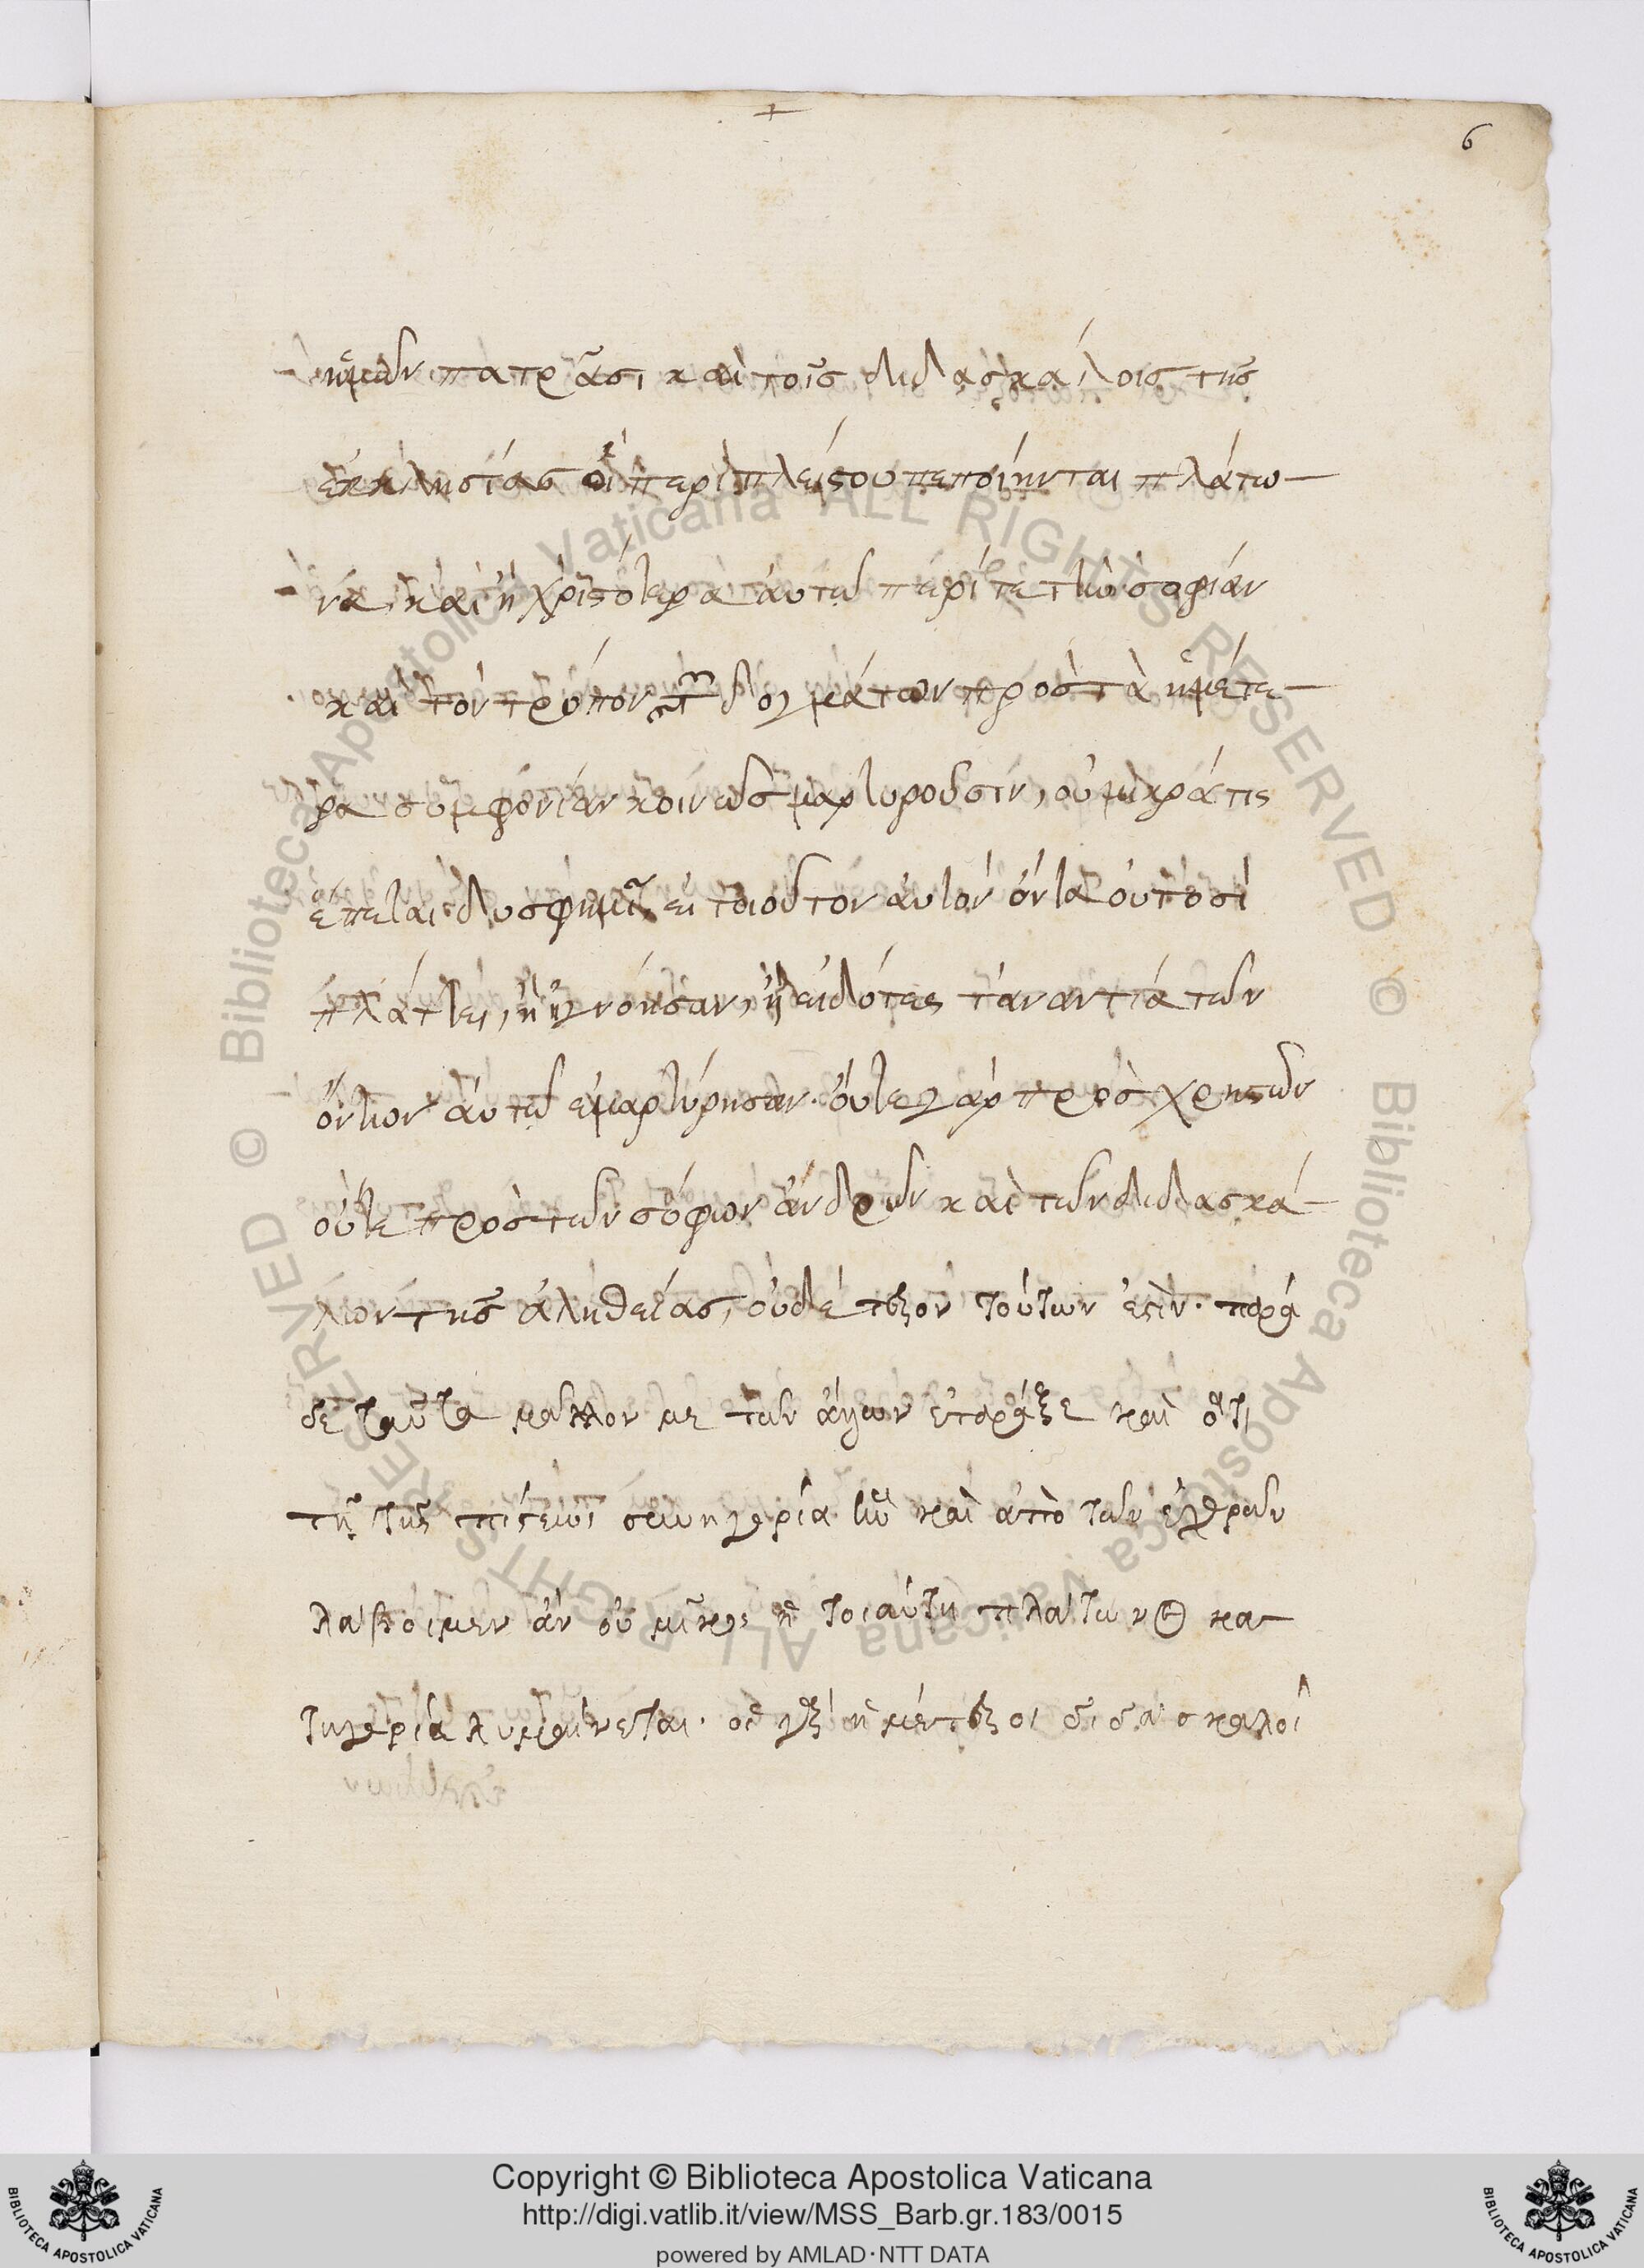 6
ἡμῶν πατρᾶσι καὶ τοῖς διδασκάλοις τῆς
ἐκκλησίας οἳ περὶ πλείστου πεποίηνται πλάτω-
να, καὶ ἡ χριστότερα αὐτῶ περί τε τὴν σοφίαν
καὶ τὸν τρόπον τῶν δογμάτων πρὸς τὰ ἡμέτε-
ρα συμφονίαν κοινῶς μαρτυροῦσιν, οὐ μικρά τις
ἕπεται δυσφημία εἰ τοιοῦτον αὐτὸν ὄντα οὑτοσὶ
πλάττει, ἢ ἠγνόησαν, ἢ εἰδότες τἀναντία τῶν
ὄντων αὐτῶ ἐμαρτύρησαν. οὔτε γὰρ πρὸς χρηστῶν
οὔτε πρὸς τῶν σόφων ἀνδρῶν καὶ τῶν διδασκά-
λων τῆς ἀληθείας, οὐδέτερον τούτων ἐστὶν. παρὰ
δὲ ταῦτα μᾶλλον με τῶν ἄλλων ἐτάραξε καὶ ὅτι
τῇ τῆς πίστεως συνηγορία ἣν καὶ ἀπὸ τῶν ἐχθρῶν
λάβοιμεν ἂν οὐ μικρὸν ἡ τοιαύτη πλάτωνος κα-
τηγορία λυμαίνεται. οἱ γὰρ ἡμέτεροι διδάσκαλοι
Copyright © Biblioteca Apostolica Vaticana
http://digi.vatlib.it/view/MSS_Barb.gr.183/0015
powered by AMLAD·NTT DATA
BIBLIOTECA APOSTOLICA VATICANA
BIBLIOTECA APOSTOLICA VATICANA
© Biblioteca Apostolica Vaticana ALL RIGHTS RESERVED © Biblioteca Apostolica Vaticana ALL RIGHTS RESERVED